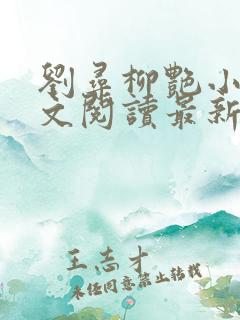 劉尋柳艷小
文閱讀最新
王志才
未經同意禁止轉載